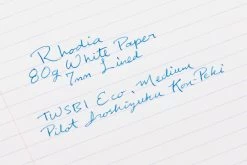 Rhodia
80g White Paper
7mm Lined
TWSBI Eco, Medium
Pilot Iroshizuku Kon-Peki